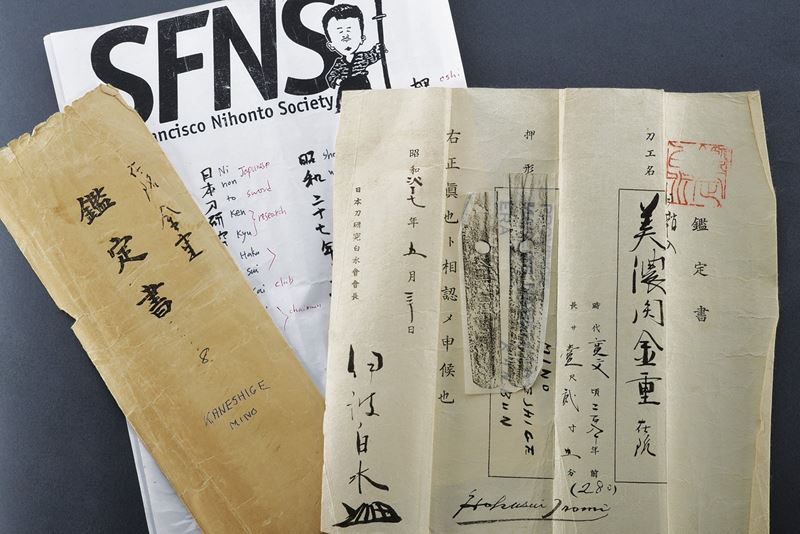 SFNS
ancisco Nihonto Society
eshi
日本刀研究
Ni
hon
to
Ken
Kyu
Haku
Sui
Japanese
sword
research
club
chairman
昭和二十七年
在銘 金重
鑑定書
8.
KANESHIGE
MINO
鑑定書
刀工名
美濃関金重 在銘
時代 寛文 頃 年前
(280)
長サ 壹尺貳寸五分
押形
MINO
右正眞也ト相認メ申候也
昭和 七年五月 日
日本刀研究白水會會長
伊波白水
Hakusui Inami